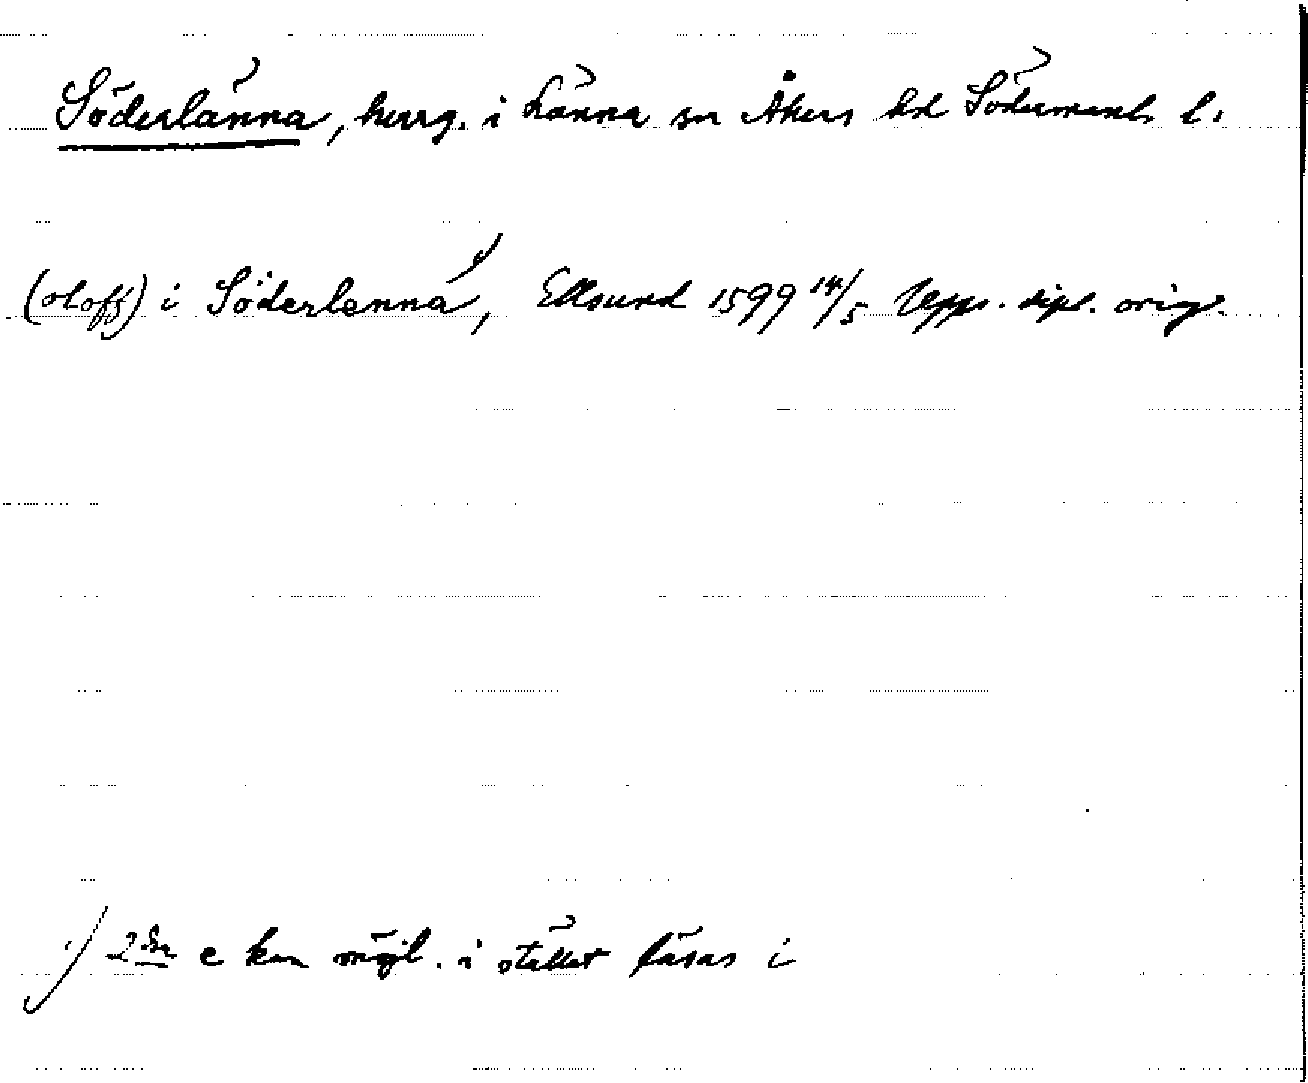 Söderlänna, herrg. i Länna sn Åkers hd Södermanl. l.
(oloff) i Söderlenna¹⁾, Edsund 1599 14/5 Upps. dipl. orig.
1) 2dra e kan möjl. i stället läsas i